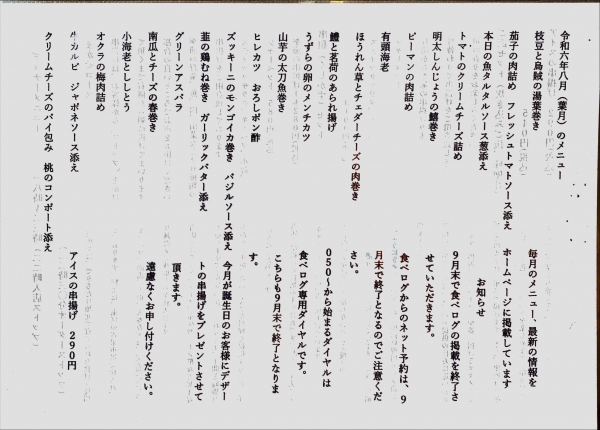 令和六年八月（葉月）のメニュー
枝豆と烏賊の湯葉巻き
茄子の肉詰め　フレッシュトマトソース添え
本日の魚タルタルソース葱添え
トマトのクリームチーズ詰め
明太しんじょうの鱚巻き
ピーマンの肉詰め
有頭海老
ほうれん草とチェダーチーズの肉巻き
鱧と茗荷のあられ揚げ
うずらの卵のメンチカツ
山芋の太刀魚巻き
ヒレカツ　おろしポン酢
ズッキーニのモンゴイカ巻き　バジルソース添え
韮の鶏むね巻き　ガーリックバター添え
グリーンアスパラ
南瓜とチーズの春巻き
小海老とししとう
オクラの梅肉詰め
牛カルビ　ジャポネソース添え
クリームチーズのパイ包み　桃のコンポート添え
毎月のメニュー、最新の情報を
ホームページに掲載しています
お知らせ
９月末で食べログの掲載を終了さ
せていただきます。
食べログからのネット予約は、９
月末で終了となるのでご注意くだ
さい。
０５０～から始まるダイヤルは
食べログ専用ダイヤルです。
こちらも９月末で終了となりま
す。
今月が誕生日のお客様にデザー
トの串揚げをプレゼントさせて
頂きます。
遠慮なくお申し付けください。
アイスの串揚げ　２９０円